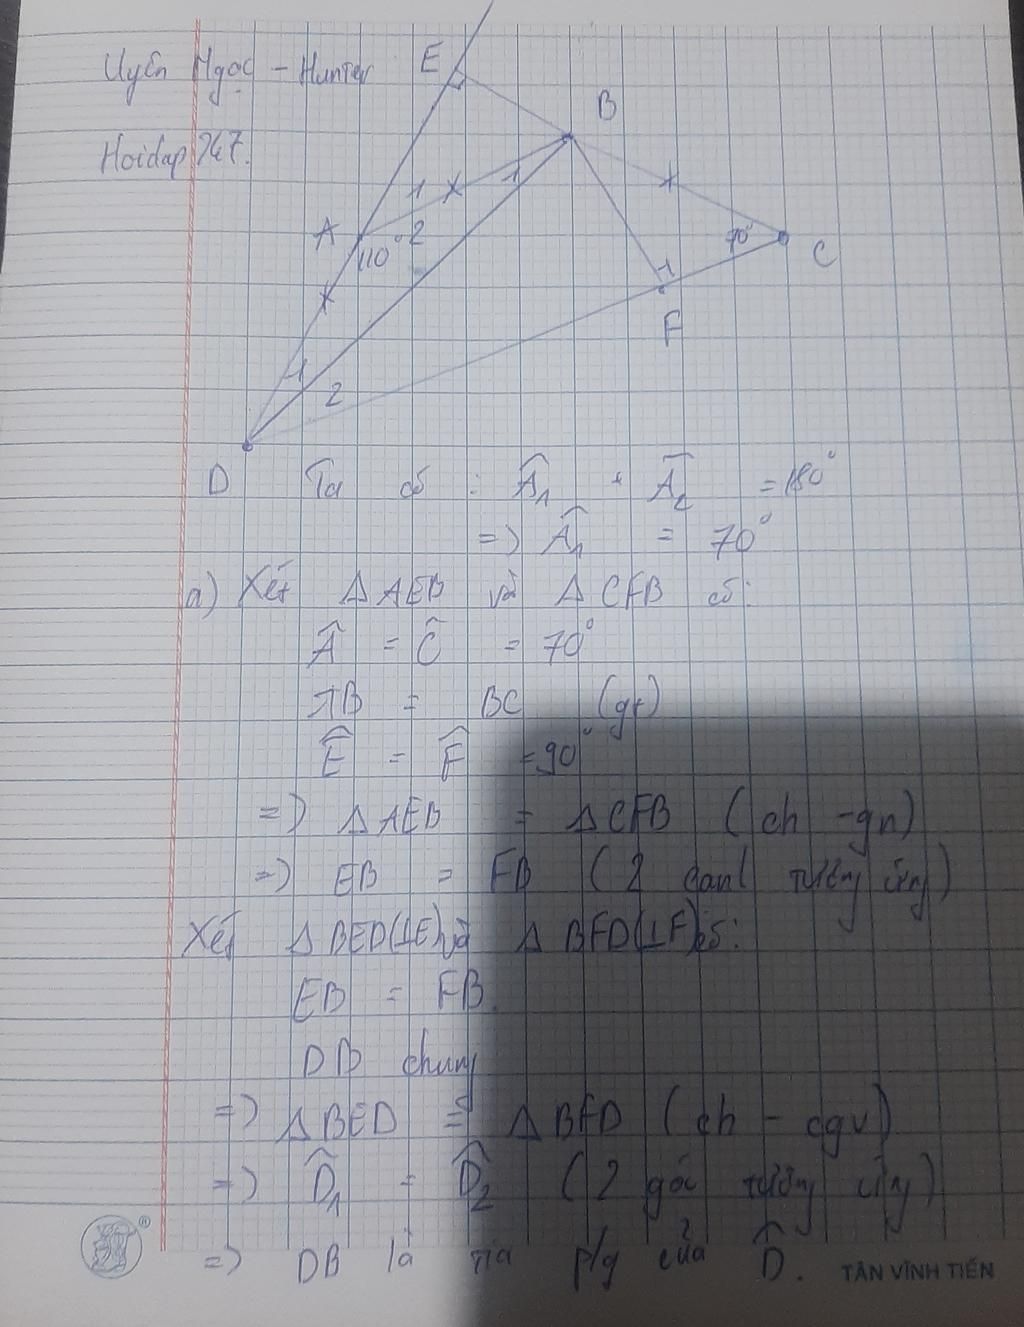 Uyên Ngọc - Hunter
Hoidap 247.
E
B
1
1
A
110° 2
70°
C
1
F
1
2
D
Ta có : Â1 + Â2 = 180°
=) Â1 = 70°
a) Xét Δ AEB và Δ CFB có:
Â = Ĉ = 70°
AB = BC (gt)
Ê = F̂ = 90°
=) Δ AEB = Δ CFB (ch - gn)
=) EB = FB (2 cạnh tương ứng)
Xét Δ BED(⊥E) và Δ BFD(⊥F) có:
EB = FB.
DB chung
=) Δ BED = Δ BFD (ch - cgv)
=) D̂1 = D̂2 (2 góc tương ứng)
=) DB là tia p/g của D̂.
TÂN VĨNH TIẾN